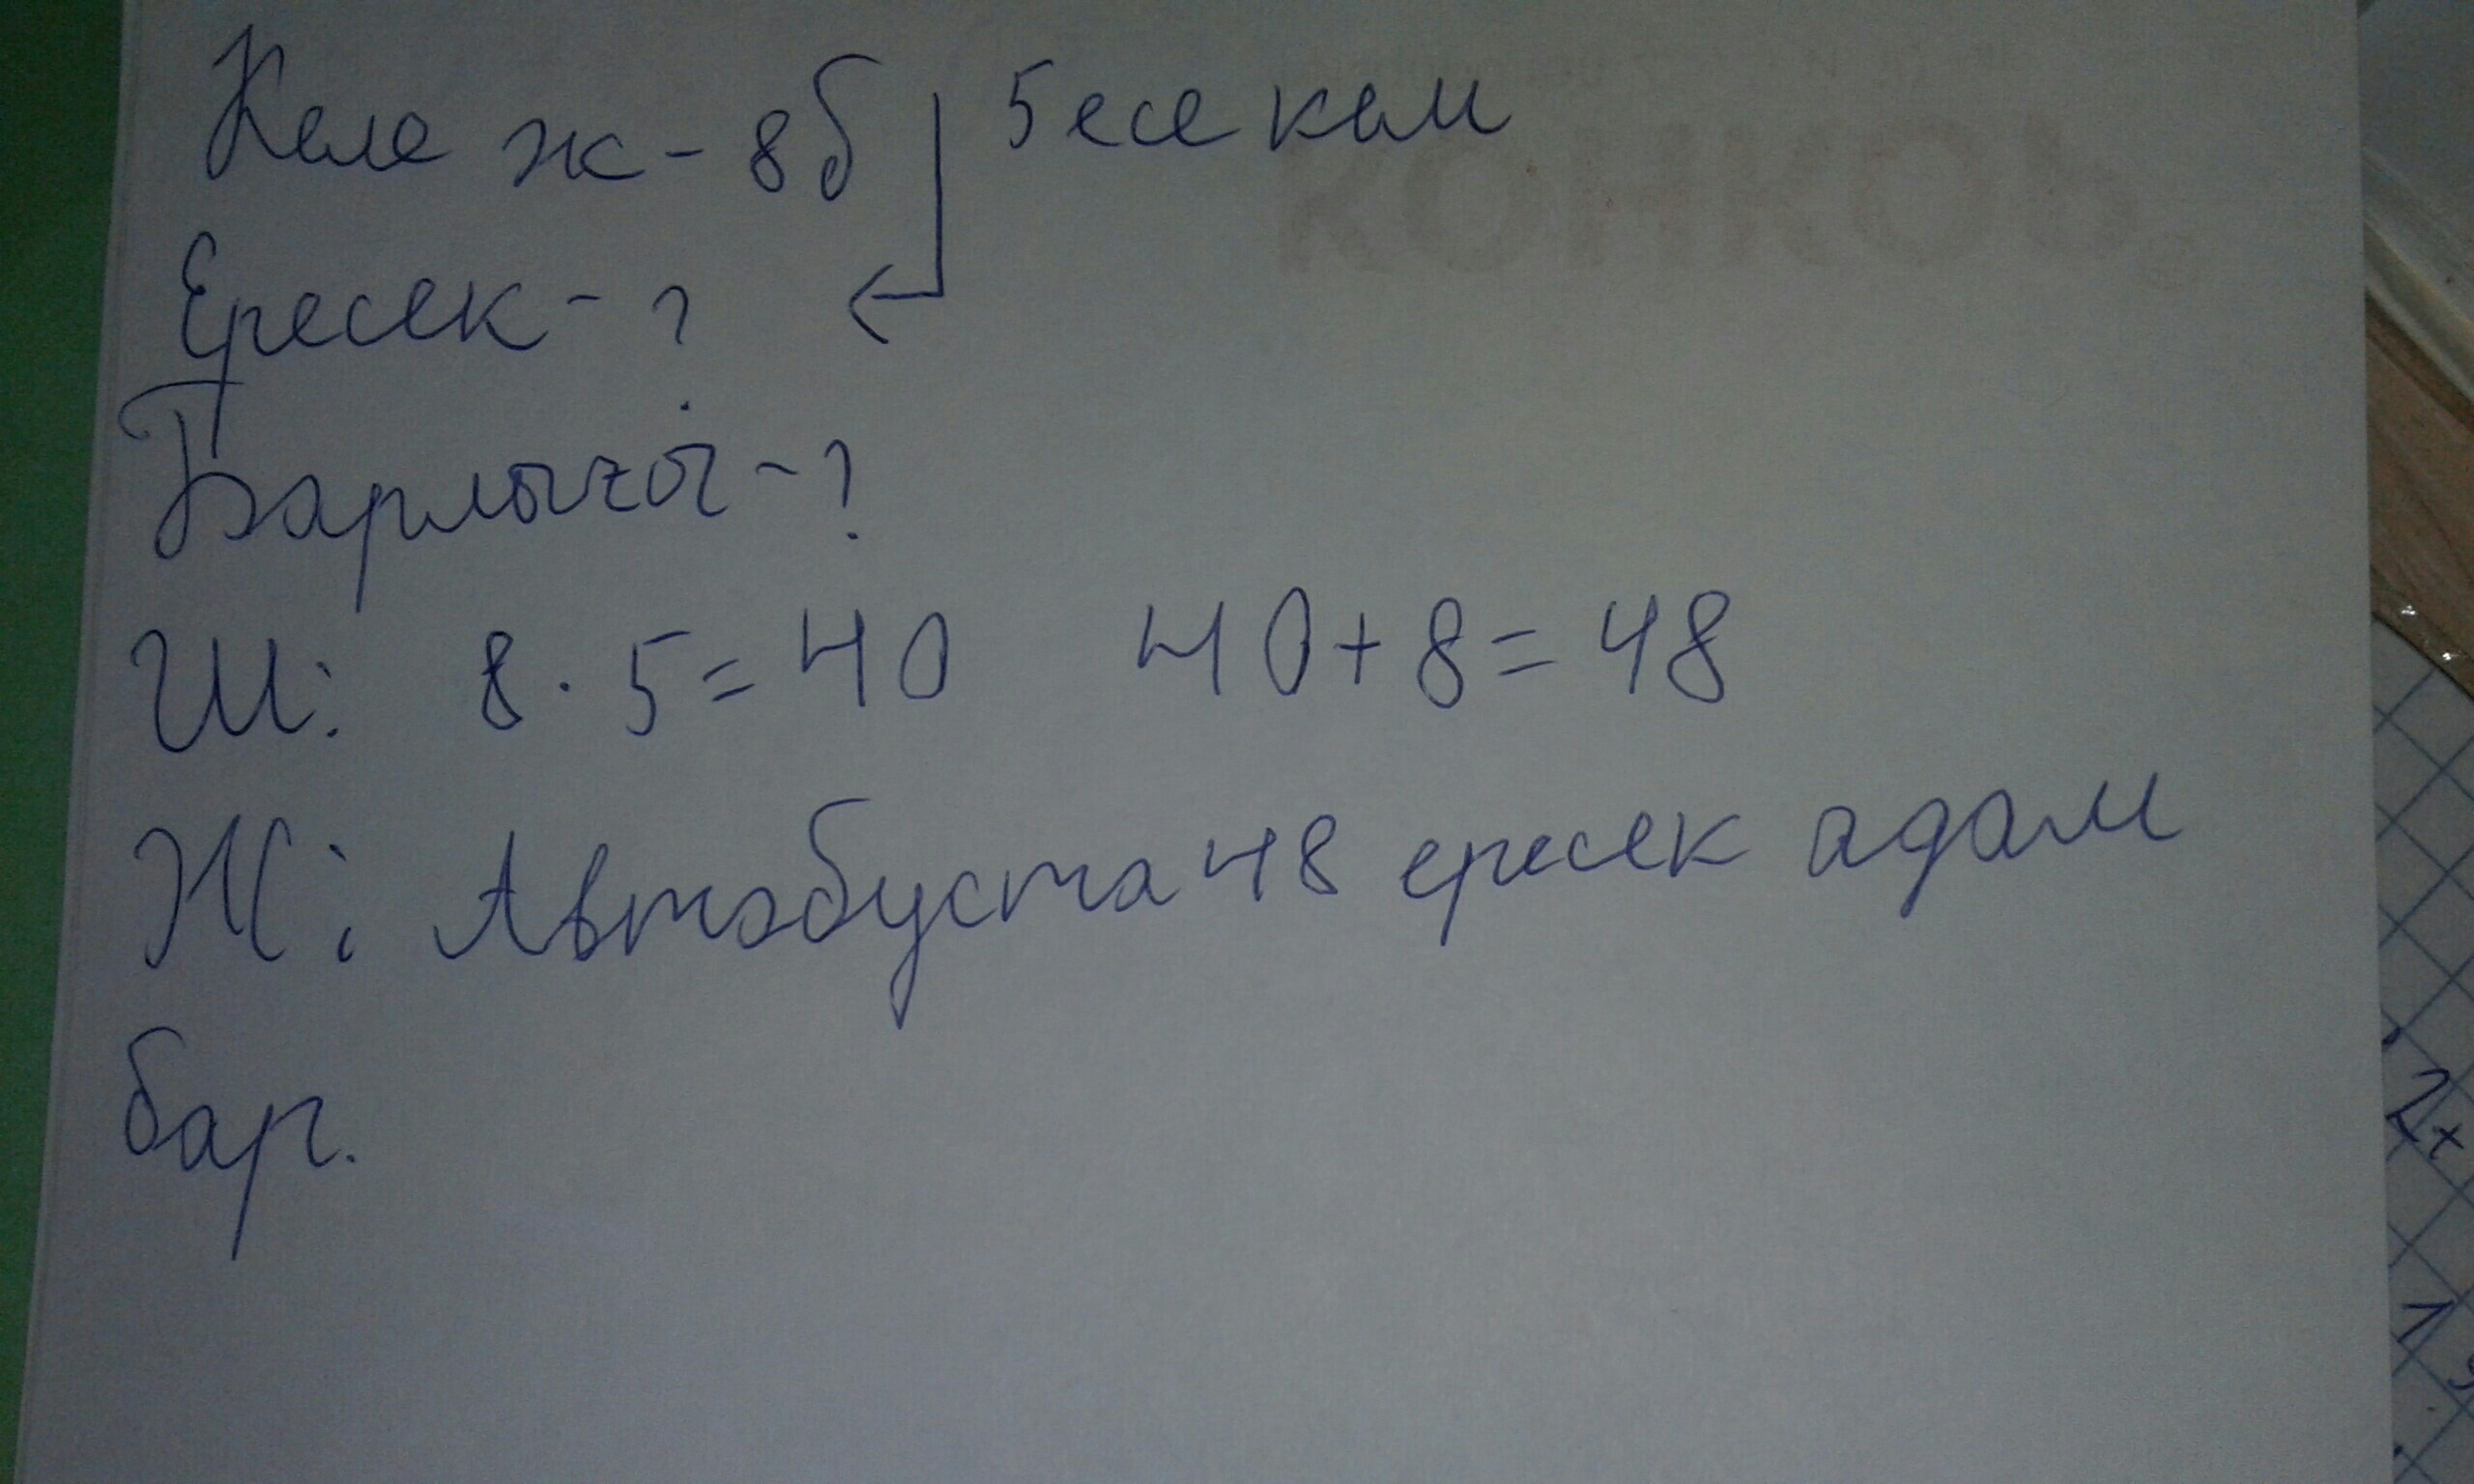 Келе ж - 8 б 5 есе кем
Ересек - ?
Барлығы - ?
Ш: 8 · 5 = 40 40 + 8 = 48
Ж: Автобуста 48 ересек адам
бар.
КОНКОР
2x
1